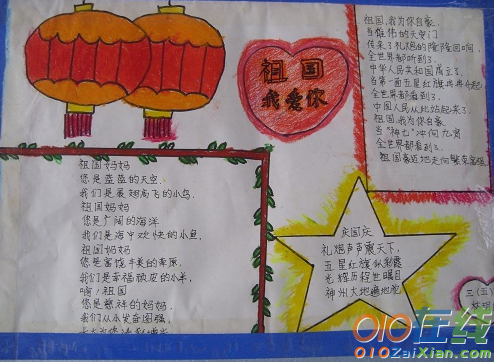 祖国
我爱你
祖国,我为你自豪,
当雄伟的天安门
传来了礼炮的隆隆回响,
全世界都听到了,
中华人民共和国成立了,
当第一面五星红旗冉冉升起,
全世界都看到了,
中国人民从此站起来了.
祖国,我为你自豪
当"神七"冲向九霄
全世界都看到了,
祖国靠近地走向繁荣富强
祖国妈妈
您是蓝蓝的天空.
我们是展翅高飞的小鸟.
祖国妈妈
您是广阔的海洋
我们是海中欢快的小鱼,
祖国妈妈
您是富饶丰美的草原,
我们是幸福的小羊,
啊!祖国
您是慈祥的妈妈,
我们从小发奋图强
国庆
礼炮声声震天下,
五星红旗似彩霞
光辉历程世瞩目
神州大地遍地花
三(五)
010在线
010ZaiXian.com